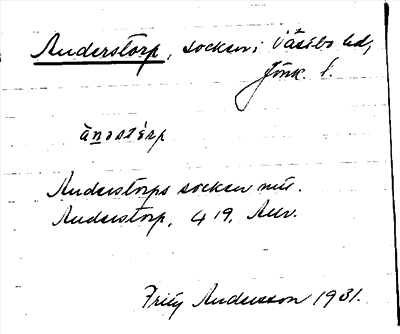 Anderstorp, socken i Västbo hd,
Jönk. l.
ànəstórp
Anderstorps socken mu.
Anderstorp, 419, Adr.
Fritz Andersson 1931.